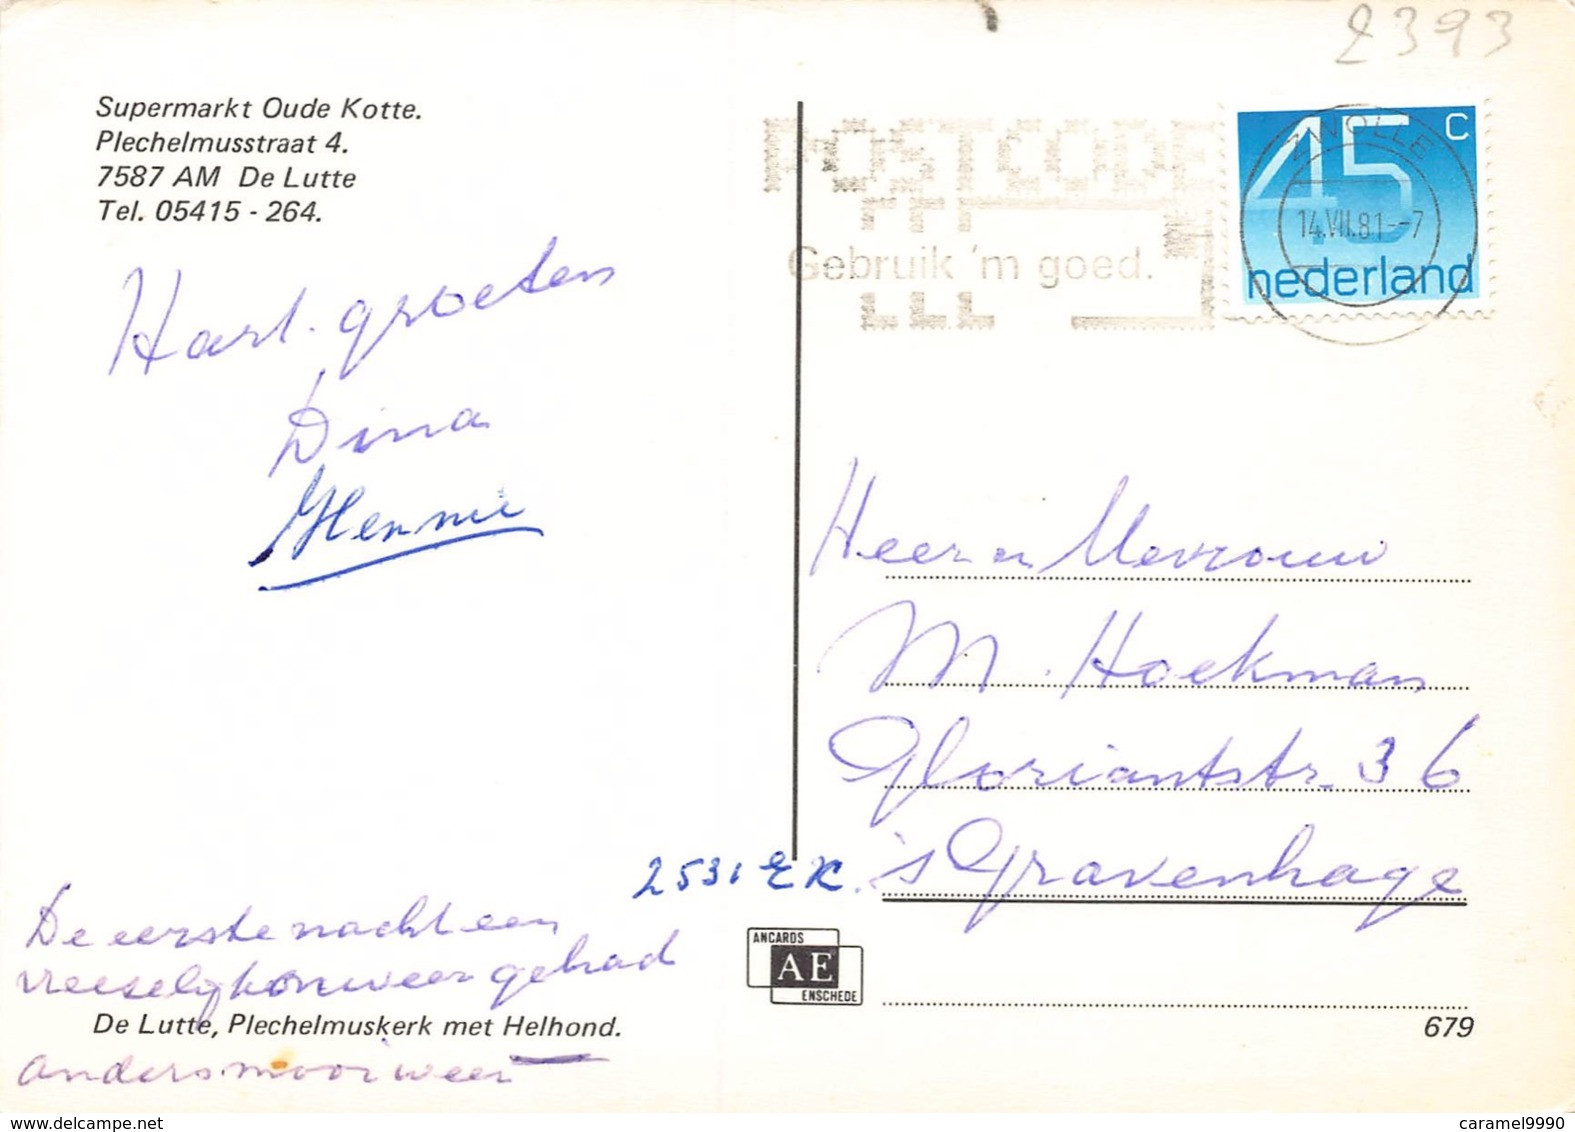 2393
Supermarkt Oude Kotte.
Plechelmusstraat 4.
7587 AM De Lutte
Tel. 05415 - 264.
POSTCODE
Gebruik 'm goed.
45 c
nederland
ZWOLLE
14.VII.81--7
Hart. groeten
Dina
Hennie
Heer en Mevrouw
M. Hoekman
Gloriantstr. 36
2531 EK 's Gravenhage
De eerste nacht een
vreeselijk onweer gehad
anders mooi weer
De Lutte, Plechelmuskerk met Helhond.
ANCARDS
AE
ENSCHEDE
679
www.delcampe.net
caramel9990